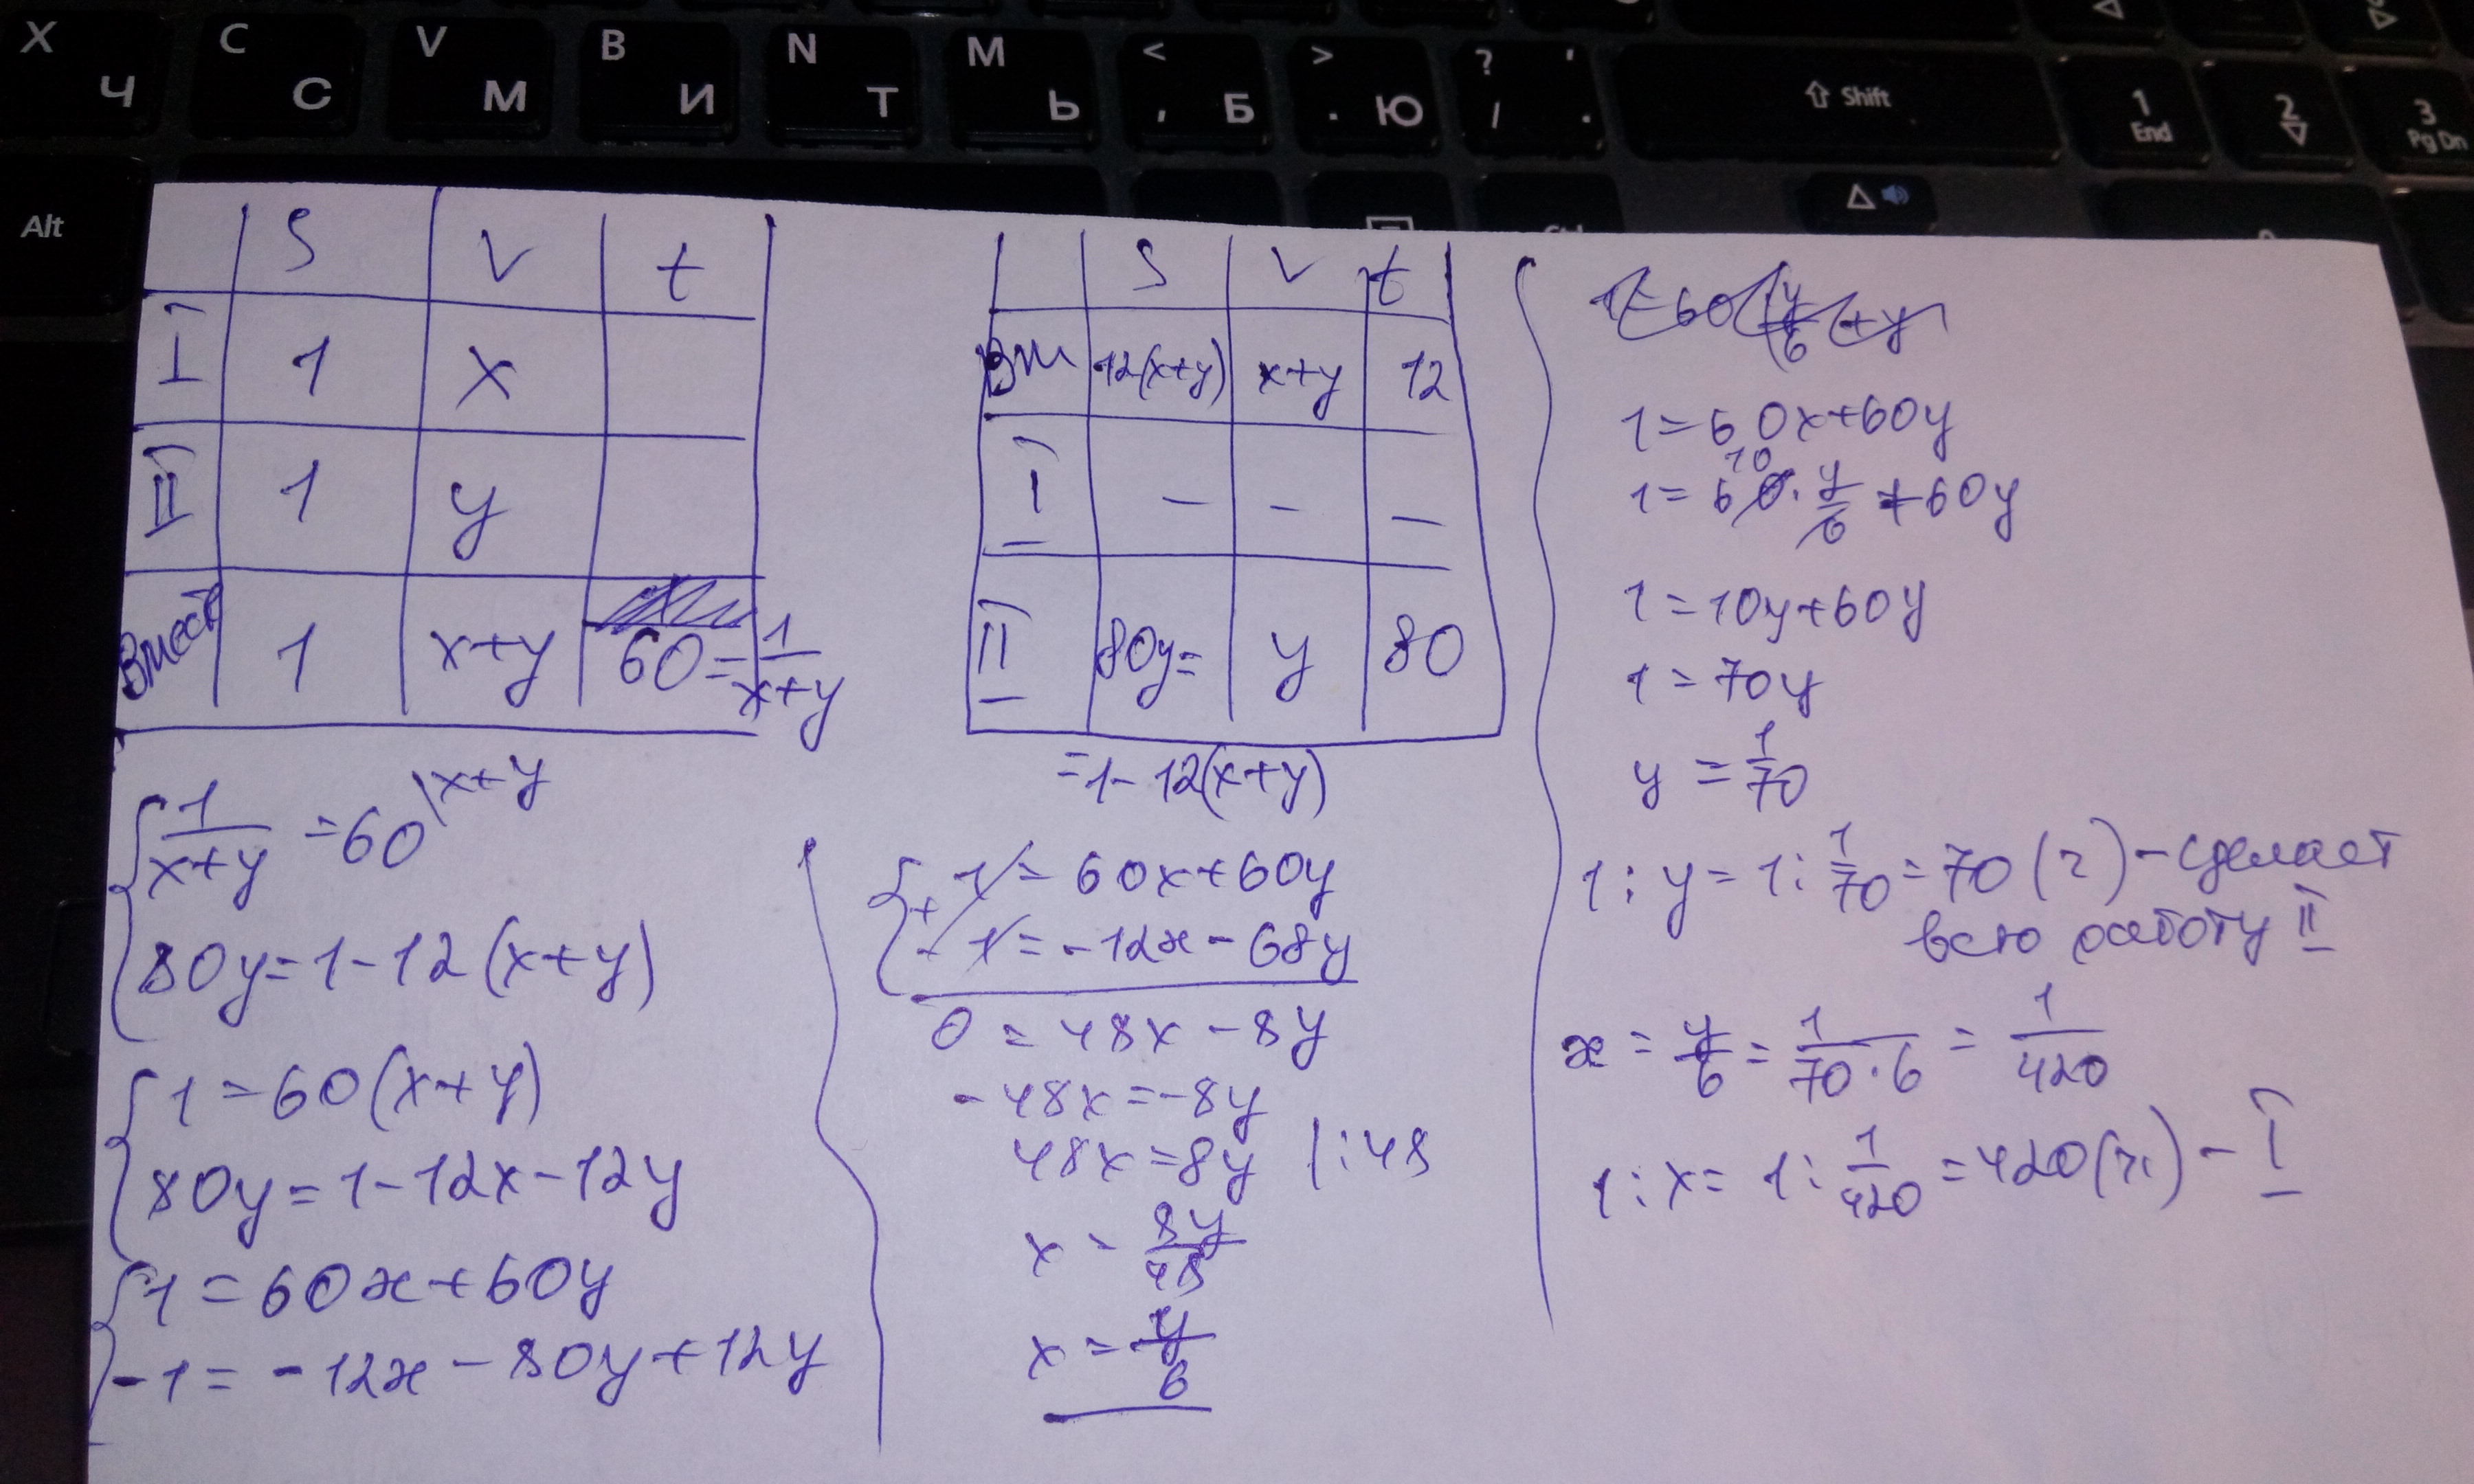 X Ч
C С
V М
B И
N Т
M Ь
< , Б
> . Ю
? ' / .
Shift
1 End
2
3 Pg Dn
Alt
S V t
I 1 x
II 1 y
Вмест 1 x+y 60=1/(x+y)
1/(x+y) =60 |x+y
80y=1-12(x+y)
1=60(x+y)
80y=1-12x-12y
1=60x+60y
-1=-12x-80y+12y
S V t
Вм 12(x+y) x+y 12
I - - -
II 80y= y 80
=1-12(x+y)
+ 1=60x+60y
-1=-12x-68y
0=48x-8y
-48x=-8y
48x=8y |:48
x=8y/48
x=y/6
1=60(y/6+y
1=60x+60y
1=60·y/6+60y
10
1=10y+60y
1=70y
y=1/70
1:y=1:1/70=70(г)-сделает
всю работу II
x=y/6=1/(70·6)=1/420
1:x=1:1/420=420(г)-I